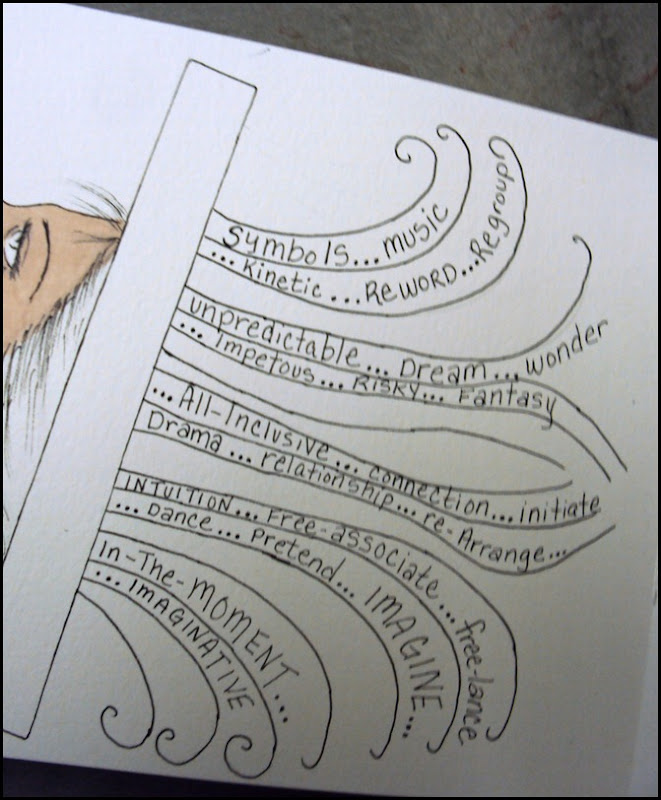 symbols... music
... Kinetic... REWORD... Regroup
unpredictable... Dream... wonder
... Impetous... RISKY... Fantasy
... All-Inclusive... connection... initiate
Drama... relationship... re-Arrange...
INTUITION... Free-associate... free-lance
... Dance... Pretend... IMAGINE...
In-The-MOMENT...
... IMAGINATIVE